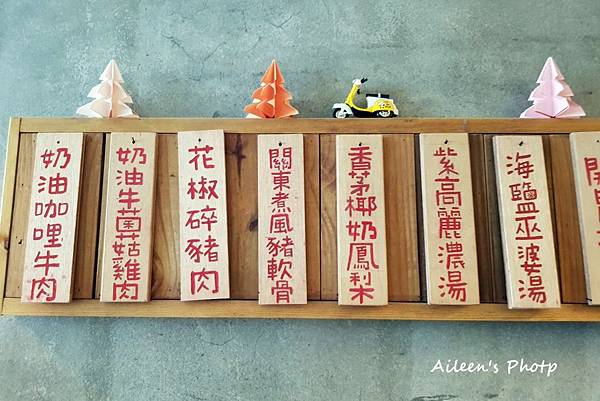 奶油咖哩牛肉
奶油牛菌菇雞肉
花椒碎豬肉
關東煮風豬軟骨
香茅椰奶鳳梨
紫高麗濃湯
海鹽巫婆湯
Aileen's Photp